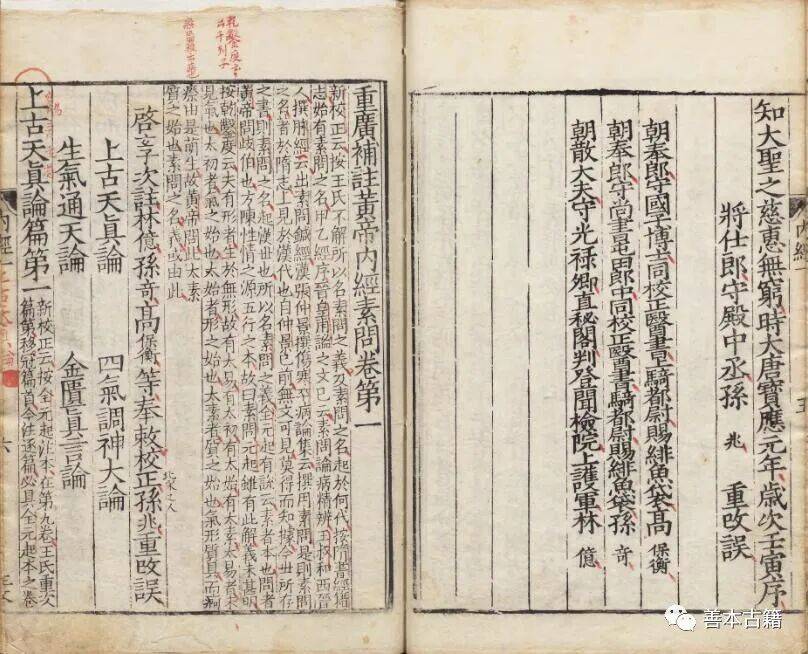 知大聖之慈惠無窮時大唐寶應元年歲次壬寅序
將仕郎守殿中丞孫 兆 重改誤
朝奉郎守國子博士同校正醫書上騎都尉賜緋魚袋髙 保衡
朝奉郎守尚書屯田郎中同校正醫書騎都尉賜緋魚袋孫 竒
朝散大夫守光祿卿直秘閣判登聞檢院上護軍林 億
內經一
重廣補註黃帝內經素問卷第一
新校正云按王氏不解所以名素問之義及素問之名起於何代按隋書經籍
志始有素問之名甲乙經序晉皇甫謐之文已云素問論病精辨王叔和西晉
人撰脉經云出素問鍼經漢張仲景撰傷寒卒病論集云撰用素問是則素問
之名著於隋志上見於漢代也自仲景已前無文可見莫得而知據今世所存
之書則素問之名起漢世也所以名素問之義全元起有說云素者本也問者
黃帝問歧伯也方陳性情之源五行之本故曰素問元起雖有此解義未甚明
按乾鑿度云夫有形者生於無形故有太易有太初有太始有太素太易者未
見氣也太初者氣之始也太始者形之始也太素者質之始也氣形質具而痾
瘵由是萌生故黃帝問此太素
質之始也素問之名義或由此
北宋之人
啓玄子次註林億孫竒髙保衡等奉敕校正孫兆重改誤
上古天眞論 四氣調神大論
生氣通天論 金匱眞言論
上古天眞論篇第一
新校正云按全元起注本在第九卷王氏重次
篇第移冠篇首今注逐篇必具全元起本之卷
內經一 六
善本古籍